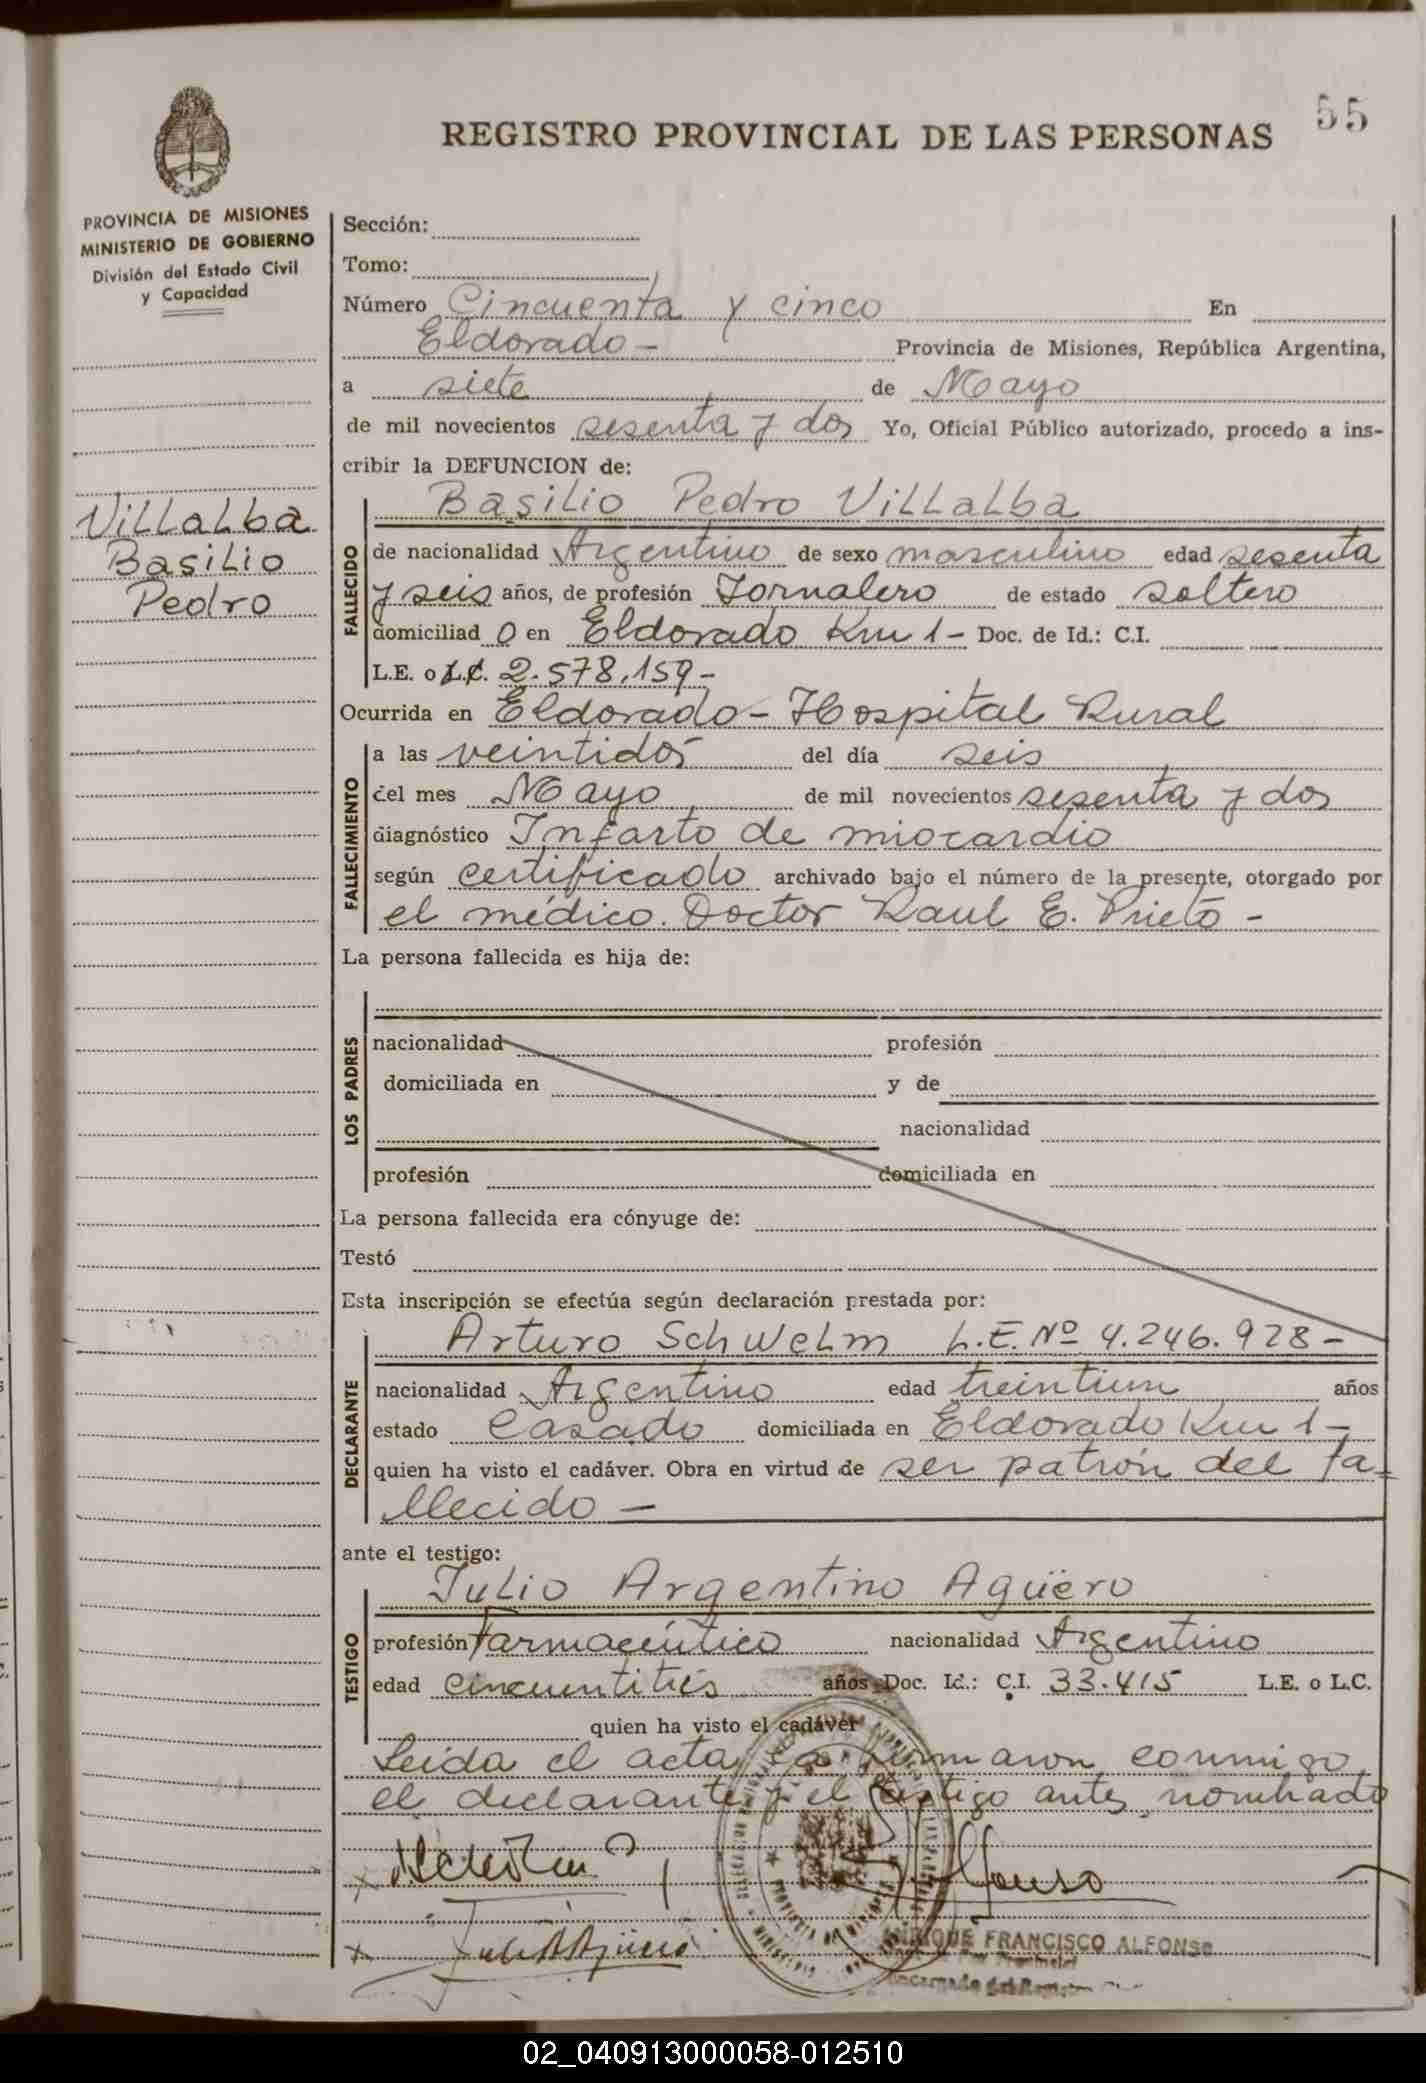 55
REGISTRO PROVINCIAL DE LAS PERSONAS
PROVINCIA DE MISIONES
MINISTERIO DE GOBIERNO
División del Estado Civil
y Capacidad
Villalba
Basilio
Pedro
Sección:
Tomo:
Número Cincuenta y cinco En
Eldorado - Provincia de Misiones, República Argentina,
a siete de Mayo
de mil novecientos sesenta y dos Yo, Oficial Público autorizado, procedo a ins-
cribir la DEFUNCION de:
Basilio Pedro Villalba
FALLECIDO
de nacionalidad Argentino de sexo masculino edad sesenta
y seis años, de profesión Jornalero de estado soltero
domiciliad o en Eldorado Km 1- Doc. de Id.: C.I.
L.E. o L.C. 2.578.159-
Ocurrida en Eldorado - Hospital Rural
FALLECIMIENTO
a las veintidós del día seis
del mes Mayo de mil novecientos sesenta y dos
diagnóstico Infarto de miocardio
según certificado archivado bajo el número de la presente, otorgado por
el médico. Doctor Raul E. Prieto -
La persona fallecida es hija de:
LOS PADRES
nacionalidad profesión
domiciliada en y de
nacionalidad
profesión domiciliada en
La persona fallecida era cónyuge de:
Testó
Esta inscripción se efectúa según declaración prestada por:
Arturo Schwelm L.E. Nº 4.246.928-
DECLARANTE
nacionalidad Argentino edad treintiun años
estado Casado domiciliada en Eldorado Km 1-
quien ha visto el cadáver. Obra en virtud de ser patrón del fa-
llecido -
ante el testigo:
Julio Argentino Agüero
TESTIGO
profesión Farmacéutico nacionalidad Argentino
edad cincuentitrés años Doc. Id.: C.I. 33.415 L.E. o L.C.
quien ha visto el cadáver
Leida el acta, la firmaron conmigo
el declarante y el testigo antes nombrado
ENRIQUE FRANCISCO ALFONSO
Encargado del Registro
02_040913000058-012510